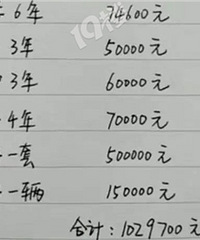 19楼
6年 74600元
3年 50000元
3年 60000元
4年 70000元
一套 500000元
一辆 150000元
合计:1029700元